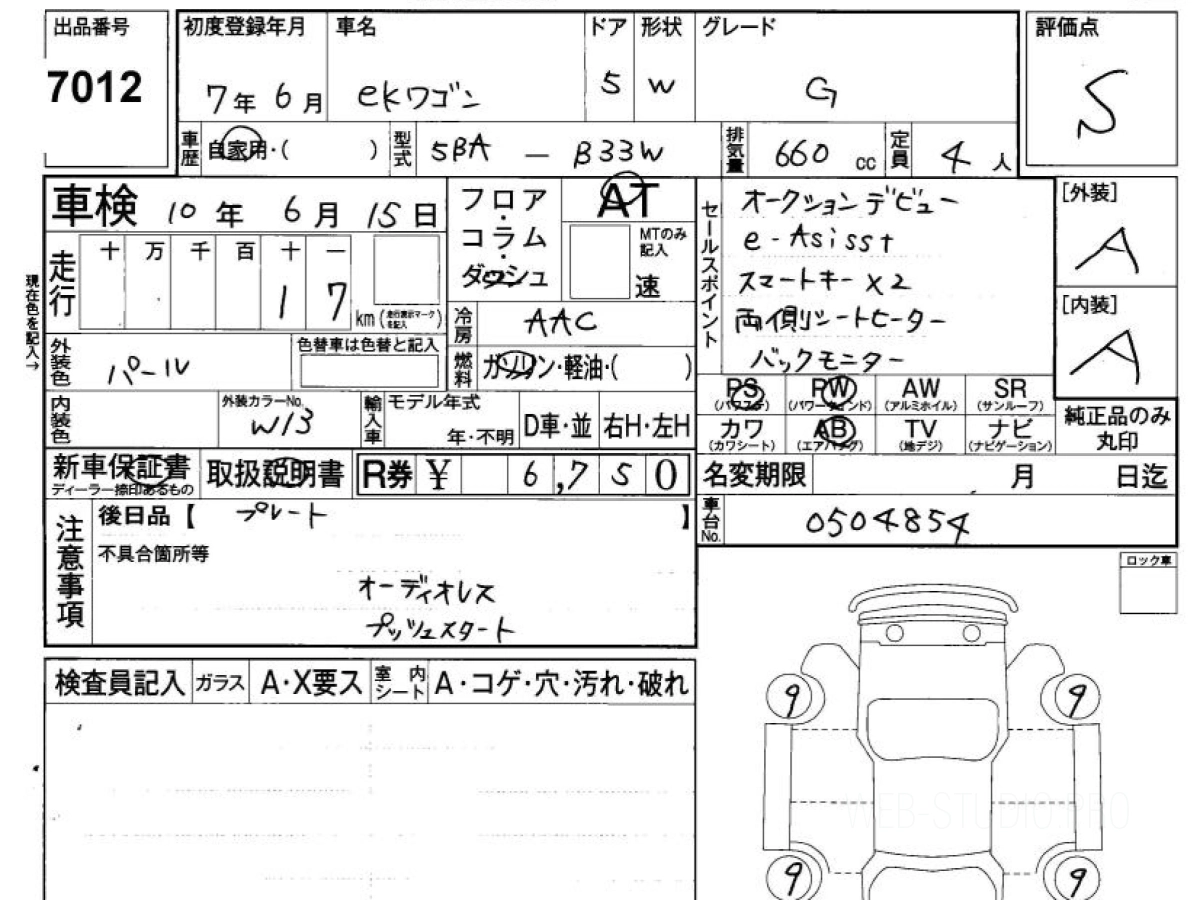 出品番号 初度登録年月 車名 ドア 形状 グレード 評価点
7012 7年 6月 ekワゴン 5 W G S
車歴 自家用・( ) 型式 5BA - B33W 排気量 660 cc 定員 4 人
車検 10年 6月 15日 フロア・コラム・ダッシュ AT セールスポイント オークションデビュー [外装]
MTのみ記入 速 e-Asisst A
走行 十 万 千 百 十 一 スマートキー×2
現在色を記入→ 1 7 km (走行表示マークを記入) 冷房 AAC 両側シートヒーター [内装]
外装色 パール 色替車は色替と記入 燃料 ガソリン・軽油・( ) バックモニター A
内装色 外装カラーNo. W13 輸入車 モデル年式 年・不明 D車・並 右H・左H PS (パワステ) PW (パワーウィンド) AW (アルミホイル) SR (サンルーフ)
カワ (カワシート) AB (エアバッグ) TV (地デジ) ナビ (ナビゲーション) 純正品のみ丸印
新車保証書 ディーラー捺印あるもの 取扱説明書 R券 ¥ 6,750 名変期限 月 日迄
注意事項 後日品【 プレート 】 車台No. 0504854
不具合箇所等 ロック車
オーディオレス
プッシュスタート
検査員記入 ガラス A・X要ス 室内シート A・コゲ・穴・汚れ・破れ
9 9
WEB-STUDIO.PRO
9 9